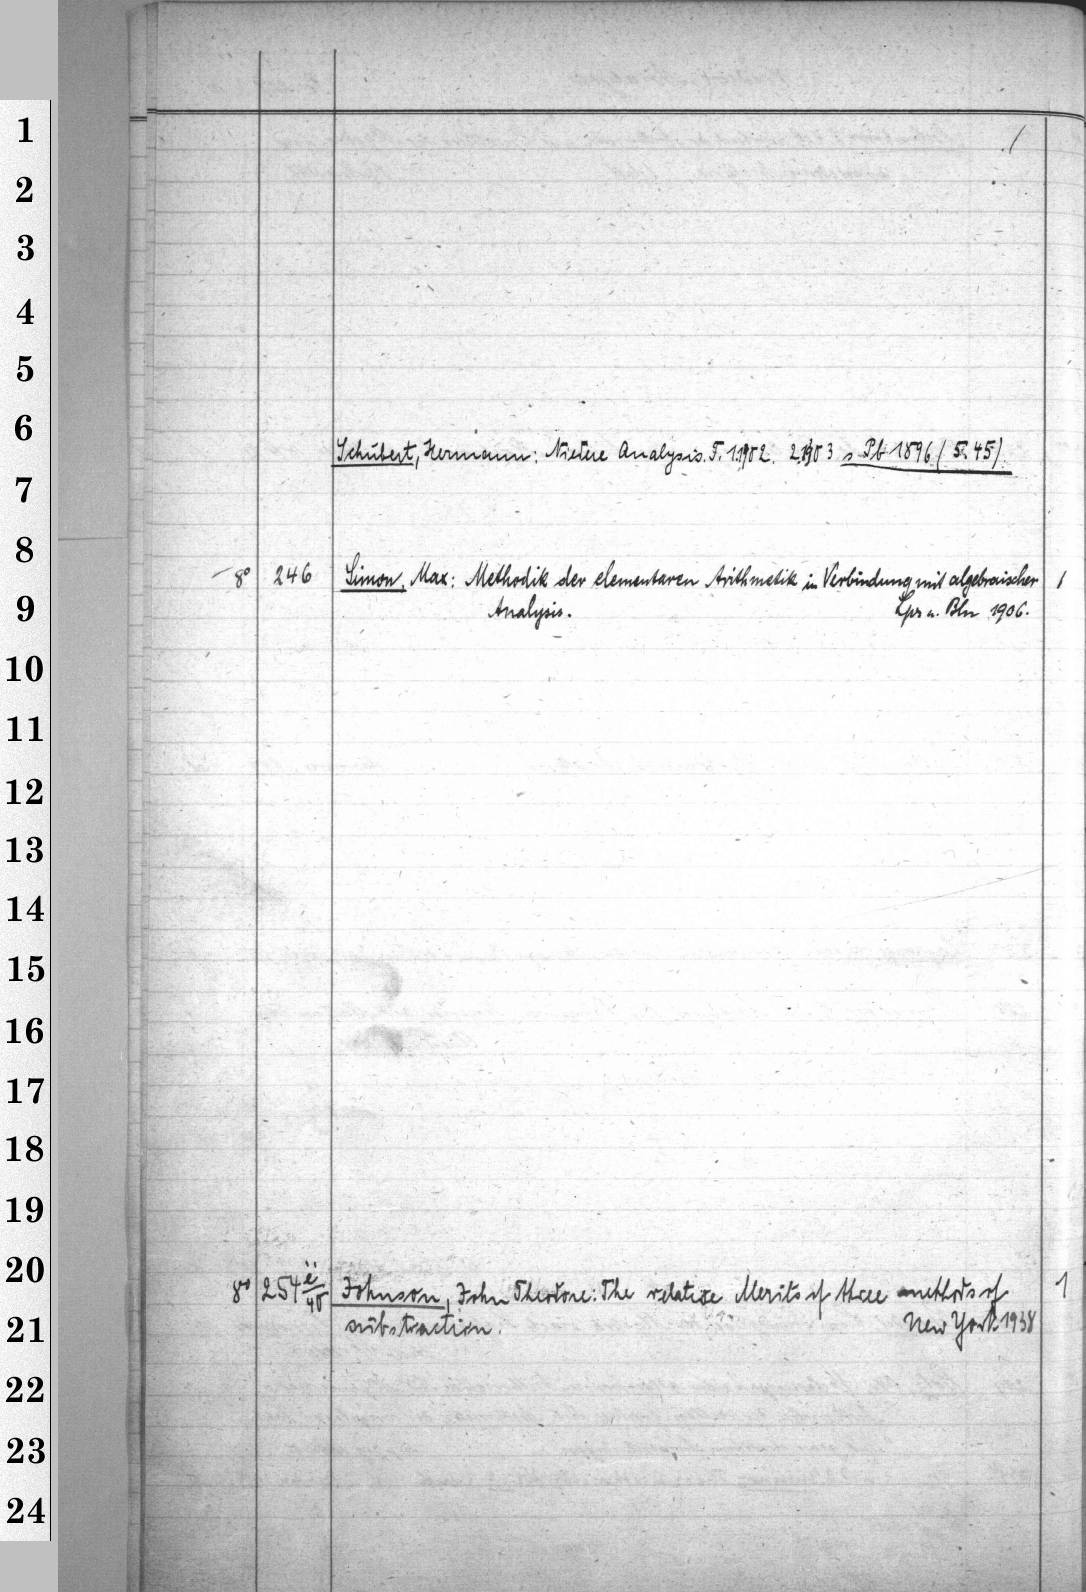 1
2
3
4
5
6
Schubert, Hermann: Niedere Analysis. T. 1.1902. 2.1903 s Pb 1896 (5.45)
7
8
8° 246 Simon, Max: Methodik der elementaren Arithmetik in Verbindung mit algebraischer 1
9
Analysis. Lpz u. Bln 1906.
10
11
12
13
14
15
16
17
18
19
20
8° 254 ë/40 Johnson, John Theodore: The relative Merits of three methods of 1
21
substraction. New York 1938
22
23
24